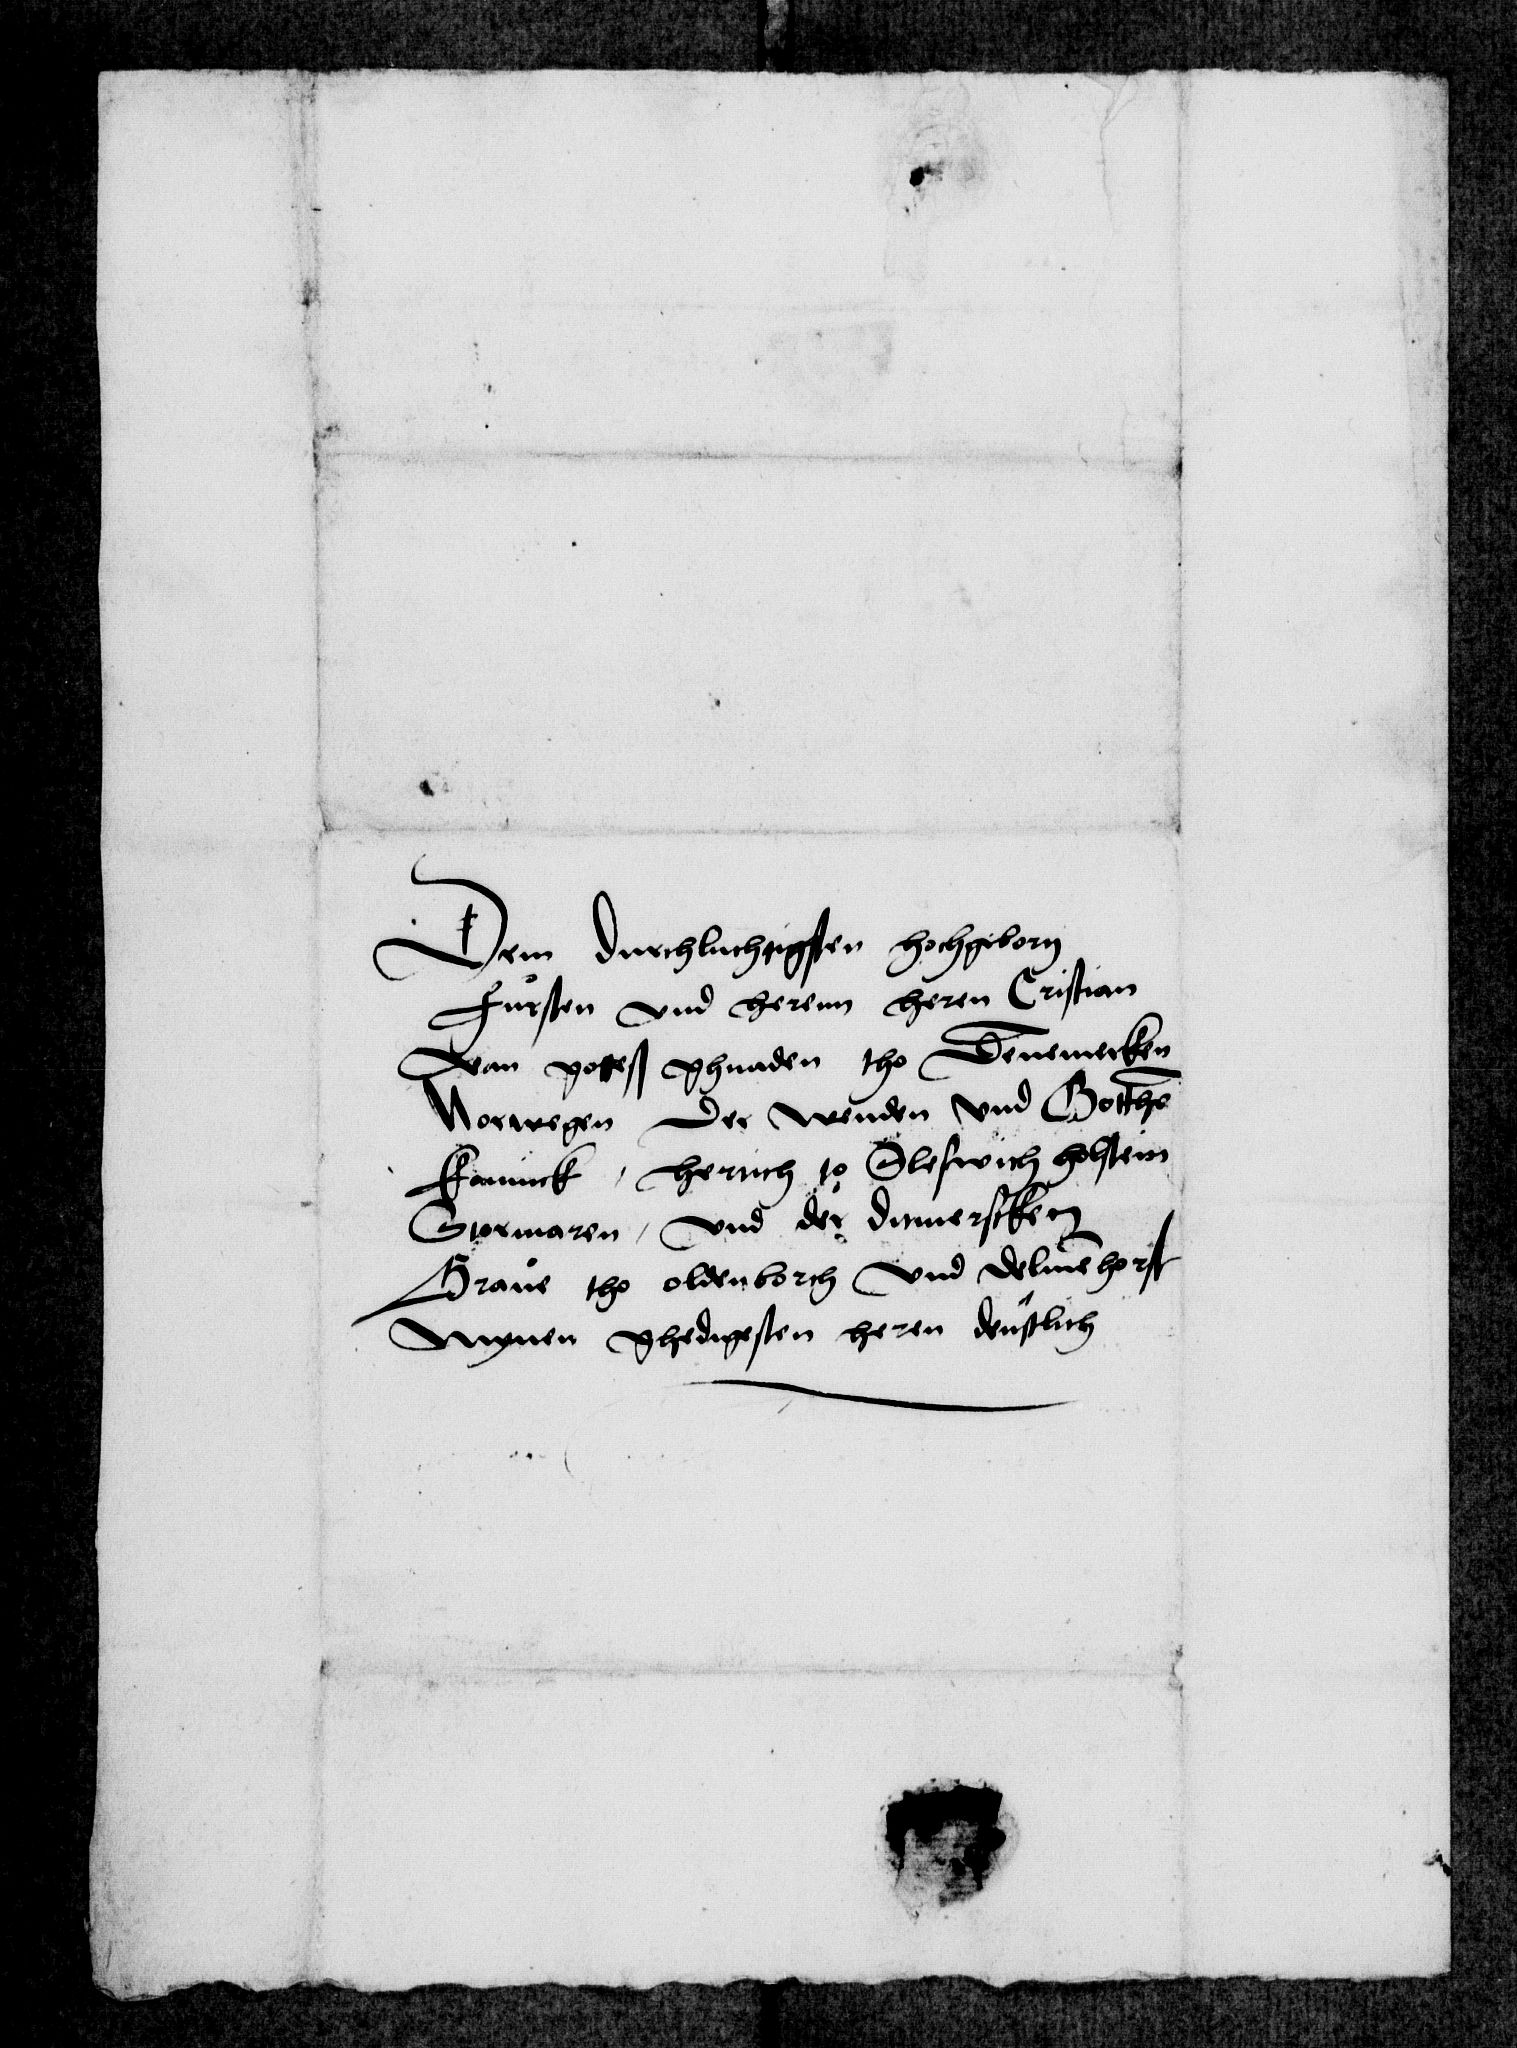 Dem durchluchtigsten hochgeborn
Fürsten vnd herenn heren Cristian
van goteß ghnaden tho Denemerken
Norwegen Der wenden vnd Gotthē
Konnick, hertich to Sleswich holstein
Stormaren, vnd der ditmerscken
Graue tho oldenborch vnd delmēhorst
Mynen ghedigesten heren denstlich